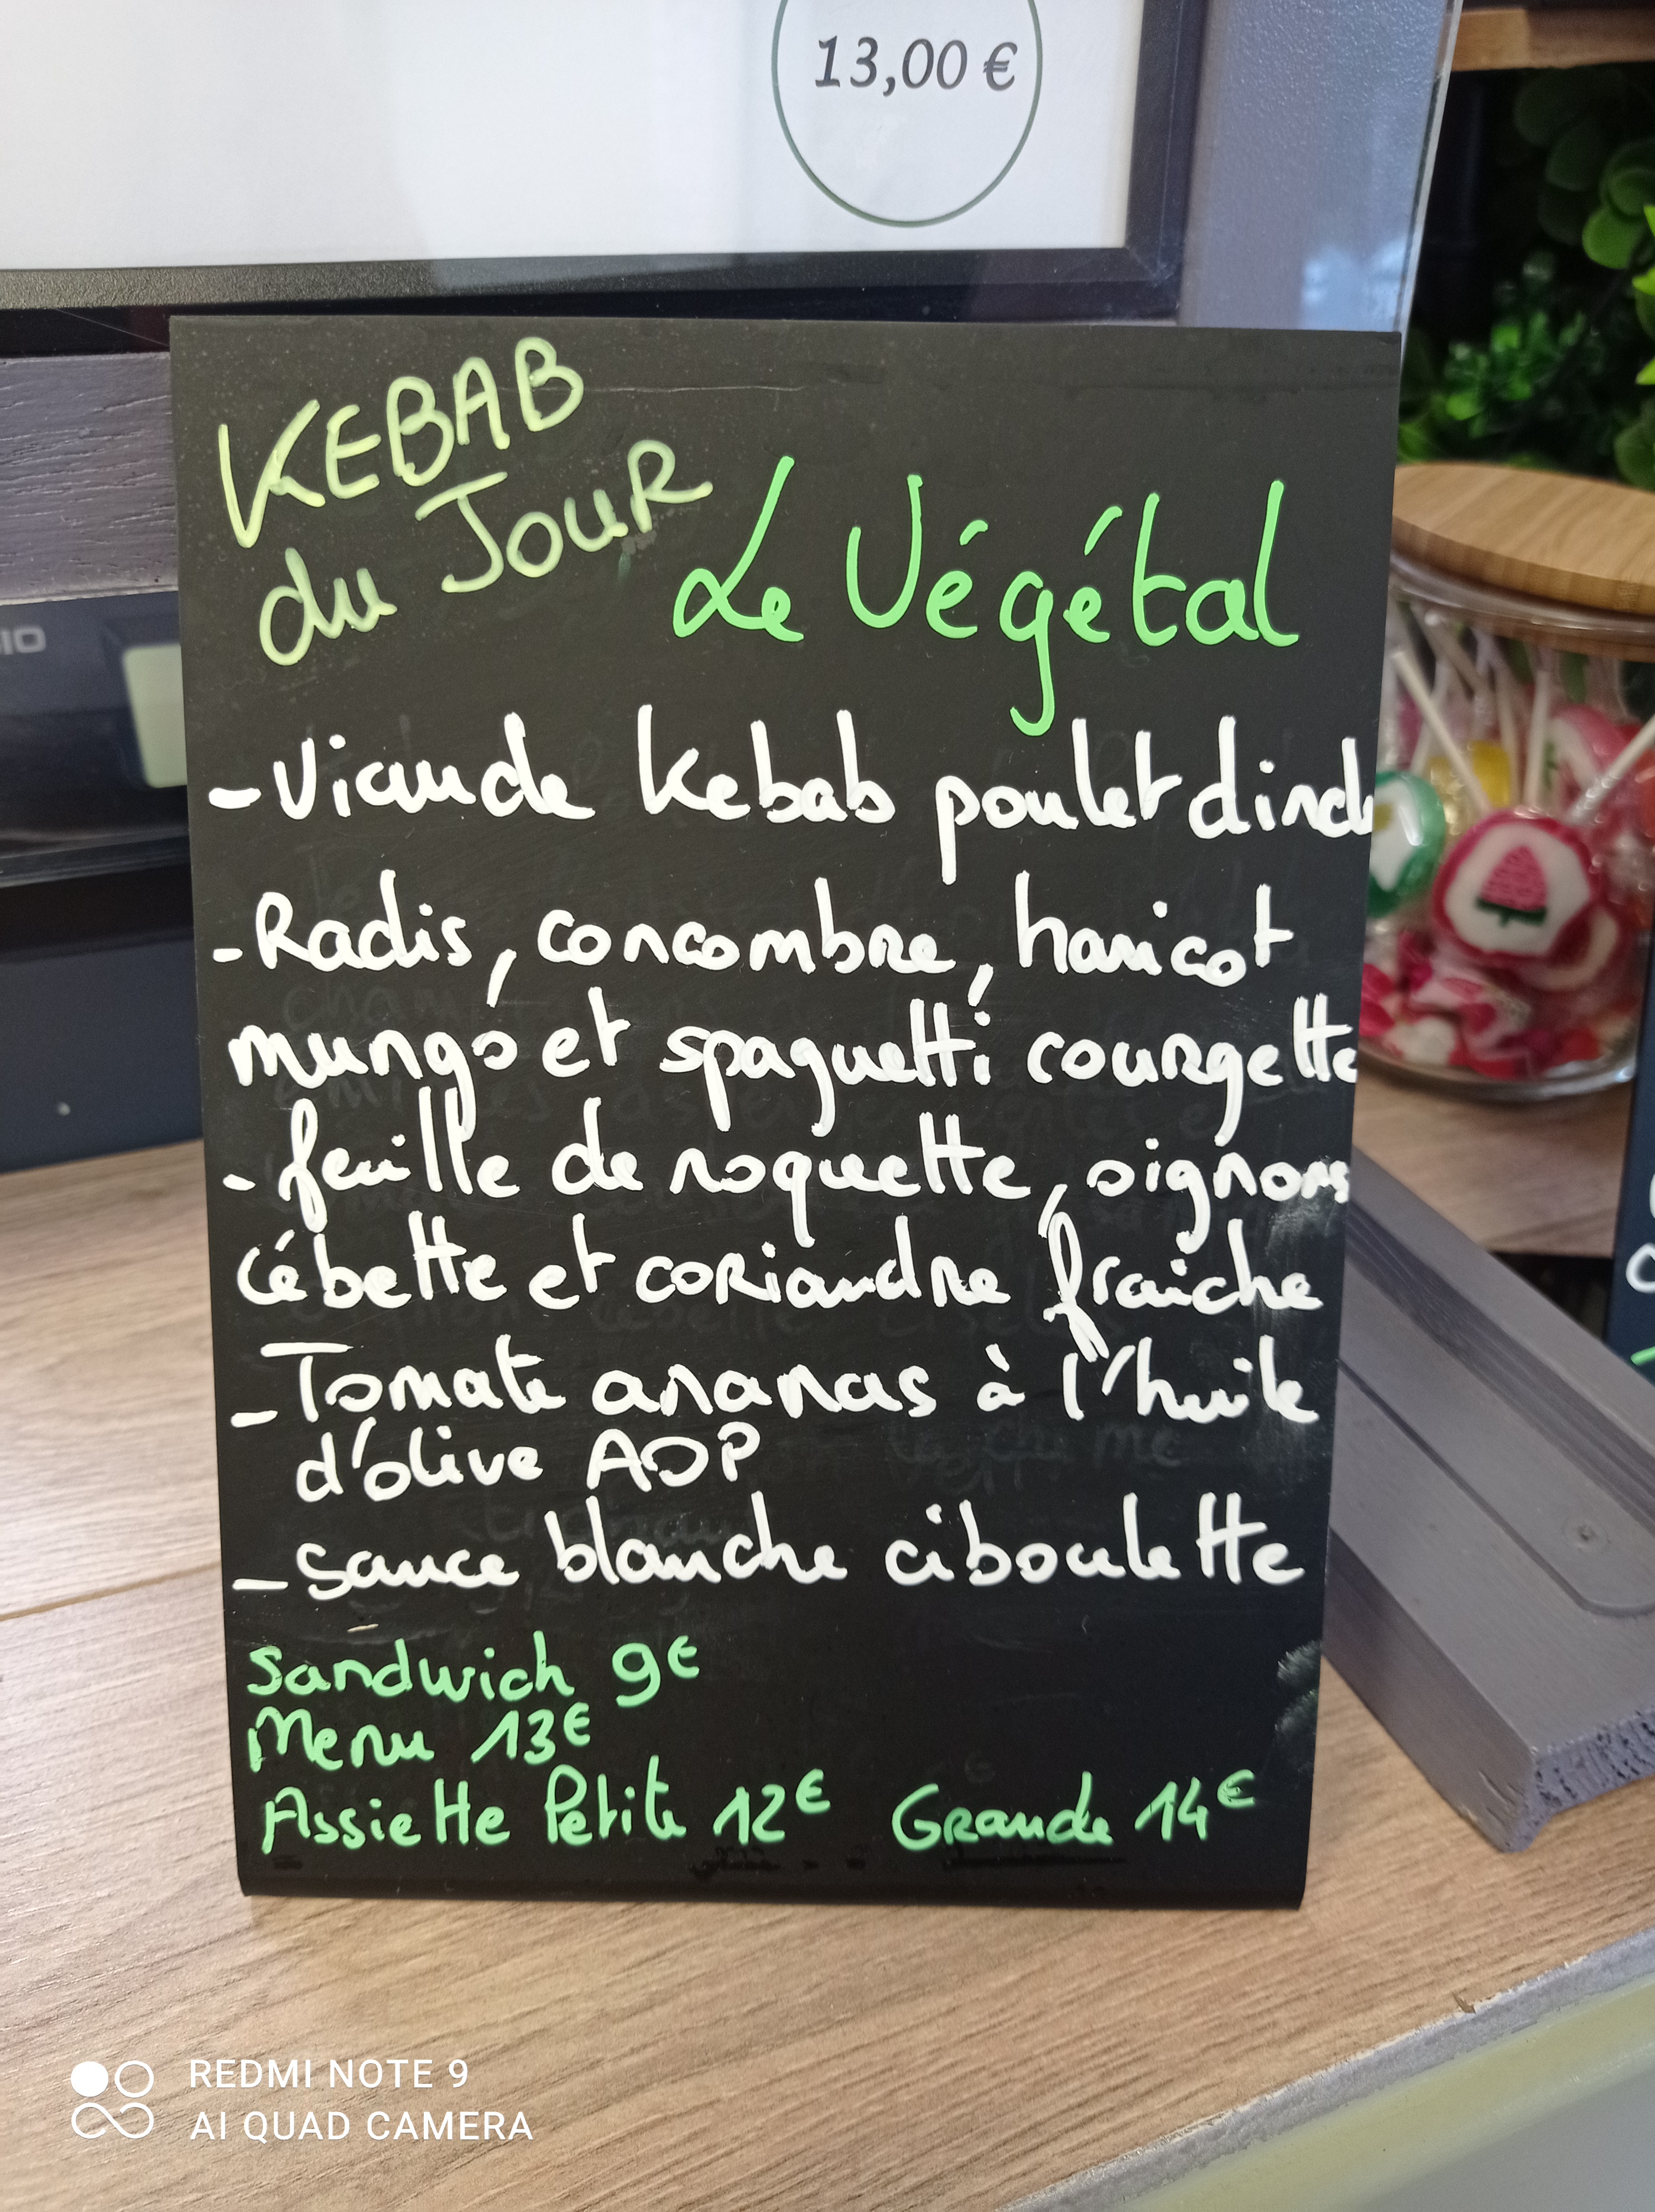 13,00 €
KEBAB
du JOUR
Le Végétal
- Viande Kebab poulet dinde
- Radis, concombre, haricot
mungo et spaguetti courgette
- feuille de roquette, oignons
cébette et coriandre fraiche
- Tomate ananas à l'huile
d'olive AOP
- sauce blanche ciboulette
Sandwich 9€
Menu 13€
Assiette Petite 12€ Grande 14€
REDMI NOTE 9
AI QUAD CAMERA